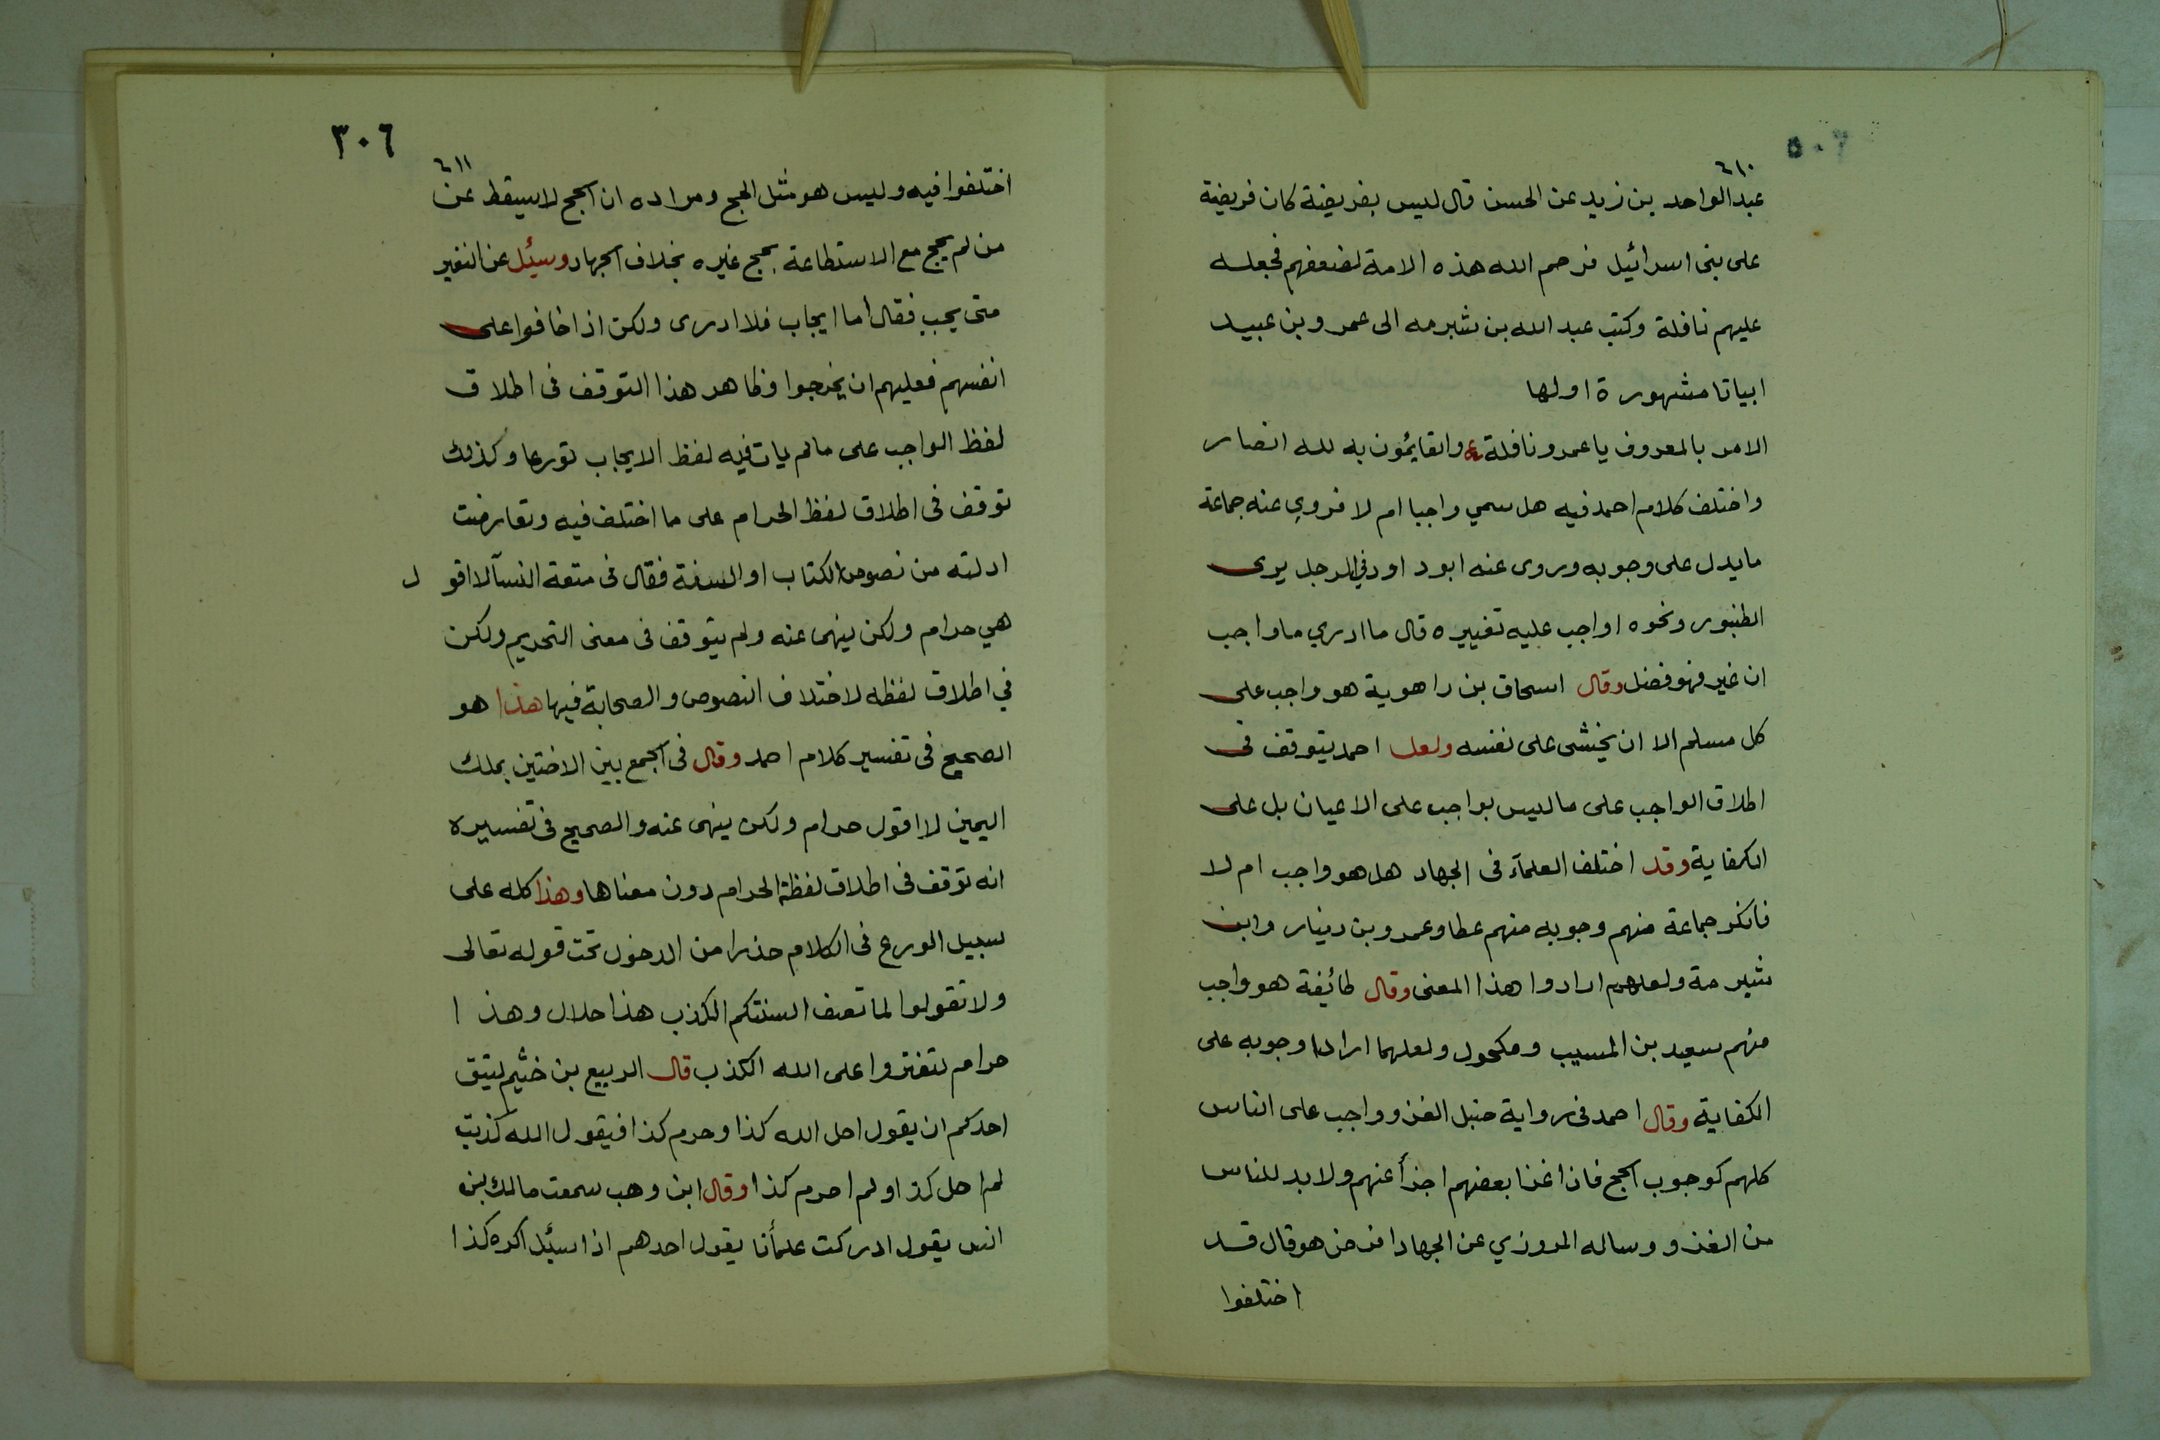 ٦١٠
عبد الواحد بن زيد عن الحسن قال ليس بفريضة كان فريضة
على بنى اسرائيل فرحم الله هذه الامة لضعفهم فجعله
عليهم نافلة وكتب عبد الله بن شبرمه الى عمرو بن عبيد
ابياتا مشهورة اولها
الامر بالمعروف يا عمرو نافلة والقايمون به لله انصار
واختلف كلام احمد فيه هل سمي واجبا ام لا فروي عنه جماعة
ما يدل على وجوبه وروى عنه ابو داود في الرجل يرى
الطنبور ونحوه اواجب عليه تغييره قال ما ادري ما واجب
ان غير فهو فضل وقال اسحاق بن راهوية هو واجب على
كل مسلم الا ان يخشى على نفسه ولعل احمد يتوقف فى
اطلاق الواجب على ما ليس بواجب على الاعيان بل على
الكفاية وقد اختلف العلمآء فى الجهاد هل هو واجب ام لا
فانكر جماعة منهم وجوبه منهم عطا وعمرو بن دينار وابن
شبرمة ولعلهم ارادوا هذا المعنى وقال طائفة هو واجب
منهم سعيد بن المسيب ومكحول ولعلهما ارادا وجوبه على
الكفاية وقال احمد فى رواية حنبل الغزو واجب على الناس
كلهم كوجوب الحج فاذا غزا بعضهم اجزأ عنهم ولا بد للناس
من الغزو وساله المروزي عن الجهاد افرض هو قال قد
اختلفوا
٣٠٦
٦١١
اختلفوا فيه وليس هو مثل الحج ومراده ان الحج لا يسقط عن
من لم يحج مع الاستطاعة بحج غيره بخلاف الجهاد وسئل عن النفير
متى يجب فقال اما ايجاب فلا ادرى ولكن اذا خافوا على
انفسهم فعليهم ان يخرجوا وظاهر هذا التوقف فى اطلاق
لفظ الواجب على ما لم يات فيه لفظ الايجاب تورعا وكذلك
توقف فى اطلاق لفظ الحرام على ما اختلف فيه وتعارضت
ادلته من نصوص الكتاب او السنة فقال فى متعة النسآ لا اقول
هي حرام ولكن ينهى عنه ولم يتوقف فى معنى التحريم ولكن
في اطلاق لفظه لاختلاف النصوص والصحابة فيها هذا هو
الصحيح فى تفسير كلام احمد وقال فى الجمع بين الاختين بملك
اليمين لا اقول حرام ولكن ينهى عنه والصحيح فى تفسيره
انه توقف فى اطلاق لفظة الحرام دون معناها وهذا كله على
سبيل الورع فى الكلام حذرا من الدخول تحت قوله تعالى
ولا تقولوا لما تصف السنتكم الكذب هذا حلال وهذا
حرام لتفتروا على الله الكذب قال الربيع بن خثيم ليتق
احدكم ان يقول احل الله كذا وحرم كذا فيقول الله كذبت
لم احل كذا ولم احرم كذا وقال ابن وهب سمعت مالك بن
انس يقول ادركت علمأنا يقول احدهم اذا سئل اكره كذا